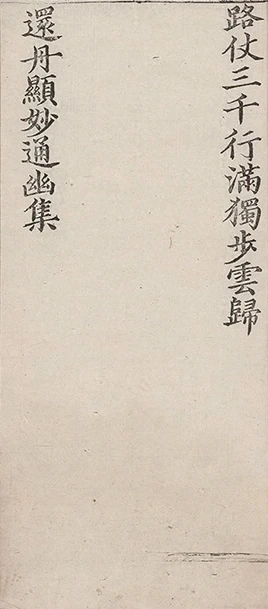 路仗三千行滿獨步雲歸
還丹顯妙通幽集